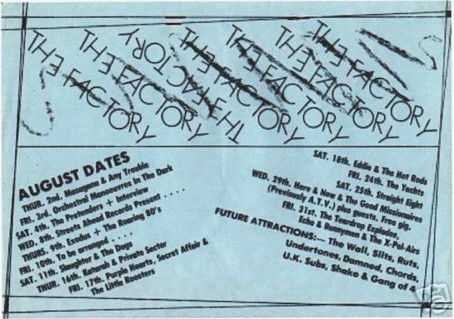 THE FACTORY
THE FACTORY
THE FACTORY
THE FACTORY
THE FACTORY
THE FACTORY
THE FACTORY
AUGUST DATES
THUR. 2nd. & Any Trouble
FRI. 3rd. Orchestral Manoeuvres In The Dark
SAT. 4th. The Pretenders + Interview
WED. 8th. Streets Ahead Records Present ....
THURS. 9th. Exodus + The Roaring 80's
FRI. 10th. To be arranged ....
SAT. 11th. Slaughter & The Dogs
THUR. 16th. Naturals & Private Sector
FRI. 17th. Purple Hearts, Secret Affair &
The Little Roosters
SAT. 18th. Eddie & The Hot Rods
FRI. 24th. The Yachts
SAT. 25th. Straight Eight
WED. 29th. Here & Now & The Good Missionaries
(Previously A.T.V.) plus guests. Free gig.
FRI. 31st. The Teardrop Explodes,
Echo & Bunnymen & The X-Pel-Airs
FUTURE ATTRACTIONS:— The Wall, Slits, Ruts,
Undertones, Damned, Chords,
U.K. Subs, Shake & Gang of 4